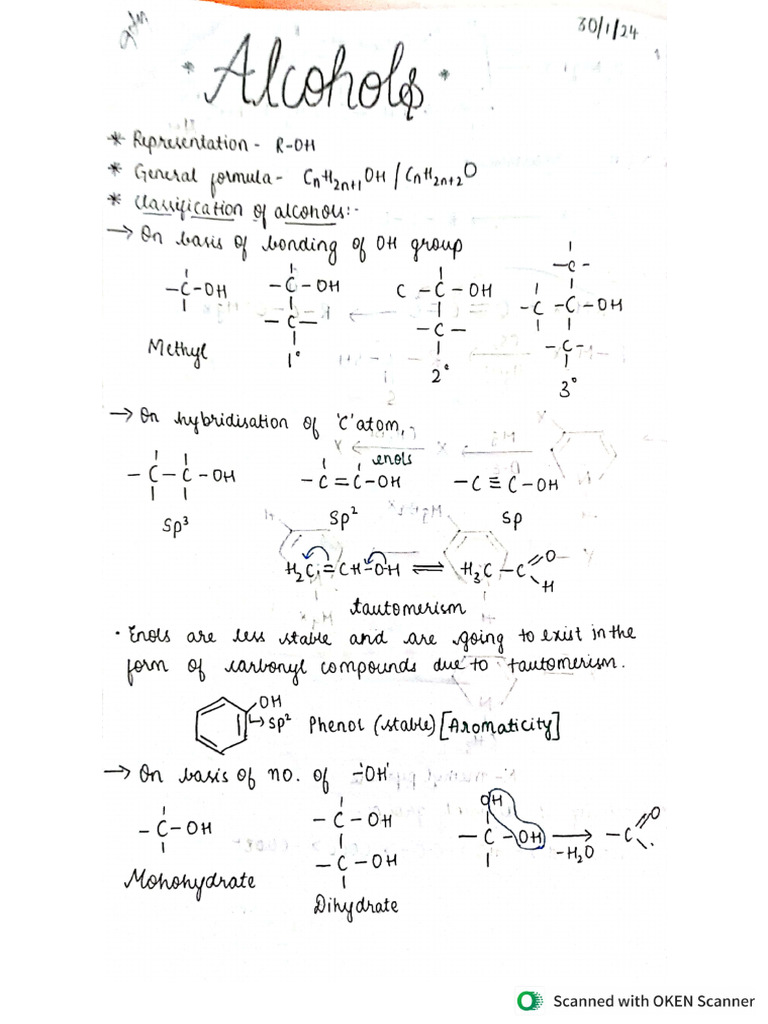 30/1/24
* Alcohols *
* Representation - R-OH
* General formula - CnH2n+1OH / CnH2n+2O
* Classification of alcohols:-
→ On basis of bonding of OH group
-C-OH -C-OH C-C-OH -C-C-OH
-C- -C- -C- -C-
Methyl 1° 2° 3°
→ On hybridisation of 'C' atom,
enols
-C-C-OH -C=C-OH -C≡C-OH
Sp³ Sp² Sp
H2C=CH-OH ⇌ H3C-C=O
H
tautomerism
· Enols are less stable and are going to exist in the
form of carbonyl compounds due to tautomerism.
OH
↳sp² Phenol (stable) [Aromaticity]
→ On basis of no. of -'OH'
OH
-C-OH -C-OH -C-OH → -C=O
-H2O
-C-OH
Monohydrate
Dihydrate
Scanned with OKEN Scanner